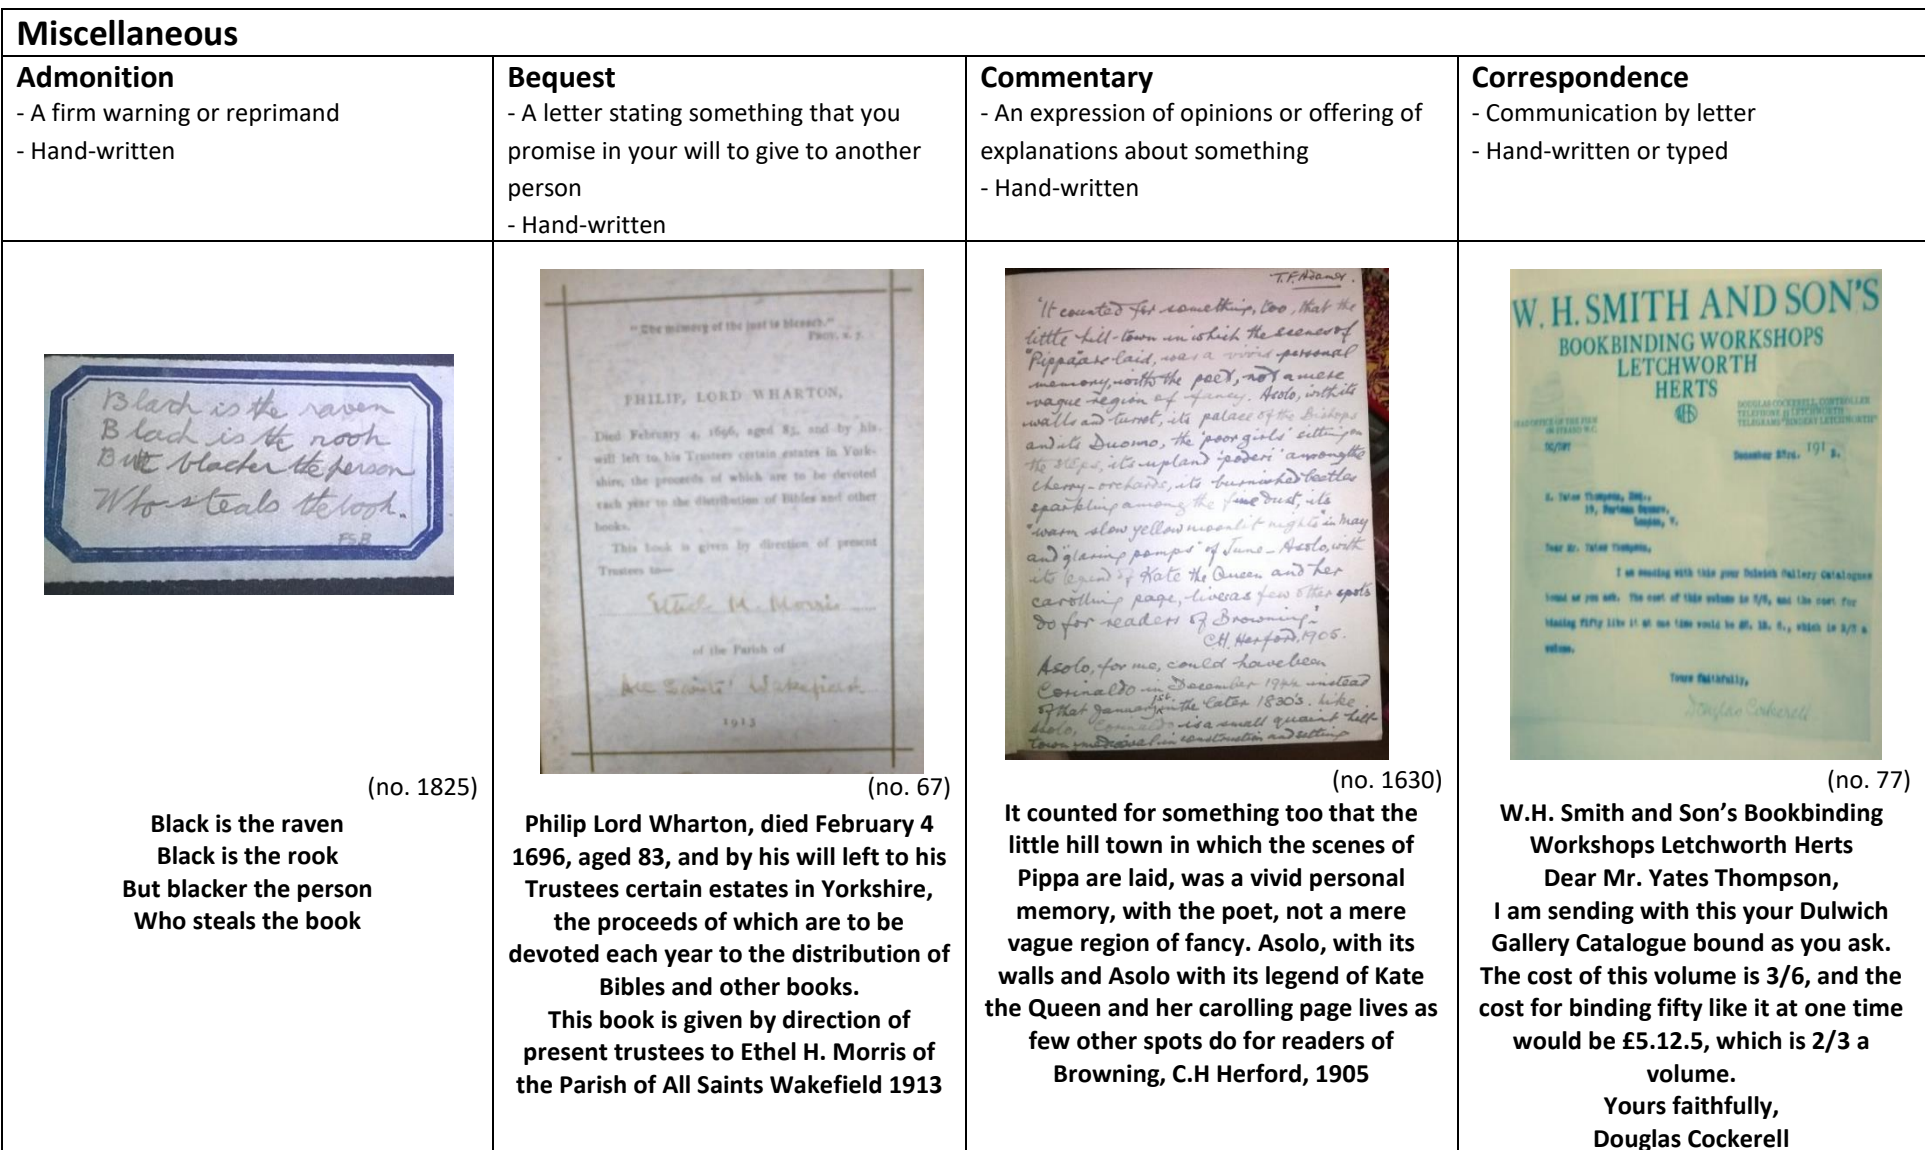 Miscellaneous
Admonition
- A firm warning or reprimand
- Hand-written
Bequest
- A letter stating something that you
promise in your will to give to another
person
- Hand-written
Commentary
- An expression of opinions or offering of
explanations about something
- Hand-written
Correspondence
- Communication by letter
- Hand-written or typed
Black is the raven
Black is the rook
But blacker the person
Who steals the book.
(no. 1825)
Black is the raven
Black is the rook
But blacker the person
Who steals the book
"The memory of the just is blessed."
Prov. x. 7.
PHILIP, LORD WHARTON,
Died February 4, 1696, aged 83, and by his
will left to his Trustees certain estates in York-
shire, the proceeds of which are to be devoted
each year to the distribution of Bibles and other
books.
This book is given by direction of present
Trustees to—
Ethel H. Morris
of the Parish of
All Saints' Wakefield
1913
(no. 67)
Philip Lord Wharton, died February 4
1696, aged 83, and by his will left to his
Trustees certain estates in Yorkshire,
the proceeds of which are to be
devoted each year to the distribution of
Bibles and other books.
This book is given by direction of
present trustees to Ethel H. Morris of
the Parish of All Saints Wakefield 1913
T.F. Adams.
"It counted for something, too, that the
little hill-town in which the scenes of
"Pippa" are laid, was a vivid personal
memory, with the poet, not a mere
vague region of fancy. Asolo, with its
walls and turret, its palace of the Bishops
and its Duomo, the 'poor girls' sitting on
the steps, its upland 'poderi' among the
cherry-orchards, its burnished beetles
sparkling among the fine dust, its
"warm slow yellow moonlit nights" in May
and "glaring pomps" of June - Asolo, with
its legend of Kate the Queen and her
carolling page, lives as few other spots
do for readers of Browning."
C.H. Herford, 1905.
Asolo, for me, could have been
Corinaldo in December 1944 instead
of that January 1st in the later 1830's. Like
Asolo, Corinaldo is a small quaint hill-
town mediaeval in construction and setting
(no. 1630)
It counted for something too that the
little hill town in which the scenes of
Pippa are laid, was a vivid personal
memory, with the poet, not a mere
vague region of fancy. Asolo, with its
walls and Asolo with its legend of Kate
the Queen and her carolling page lives as
few other spots do for readers of
Browning, C.H Herford, 1905
W. H. SMITH AND SON'S
BOOKBINDING WORKSHOPS
LETCHWORTH
HERTS
DOUGLAS COCKERELL, CONTROLLER
TELEPHONE LETCHWORTH
TELEGRAMS "BINDERY LETCHWORTH"
HEAD OFFICE OF THE FIRM
STRAND W.C.
December 191
Yates Thompson, Esq.,
19, Portman Square,
London, W.
Dear Mr. Yates Thompson,
I am sending with this your Dulwich Gallery Catalogue
bound as you ask. The cost of this volume is and the cost for
binding fifty like it at one time would be which is 2/3 a
volume.
Yours faithfully,
Douglas Cockerell
(no. 77)
W.H. Smith and Son’s Bookbinding
Workshops Letchworth Herts
Dear Mr. Yates Thompson,
I am sending with this your Dulwich
Gallery Catalogue bound as you ask.
The cost of this volume is 3/6, and the
cost for binding fifty like it at one time
would be £5.12.5, which is 2/3 a
volume.
Yours faithfully,
Douglas Cockerell